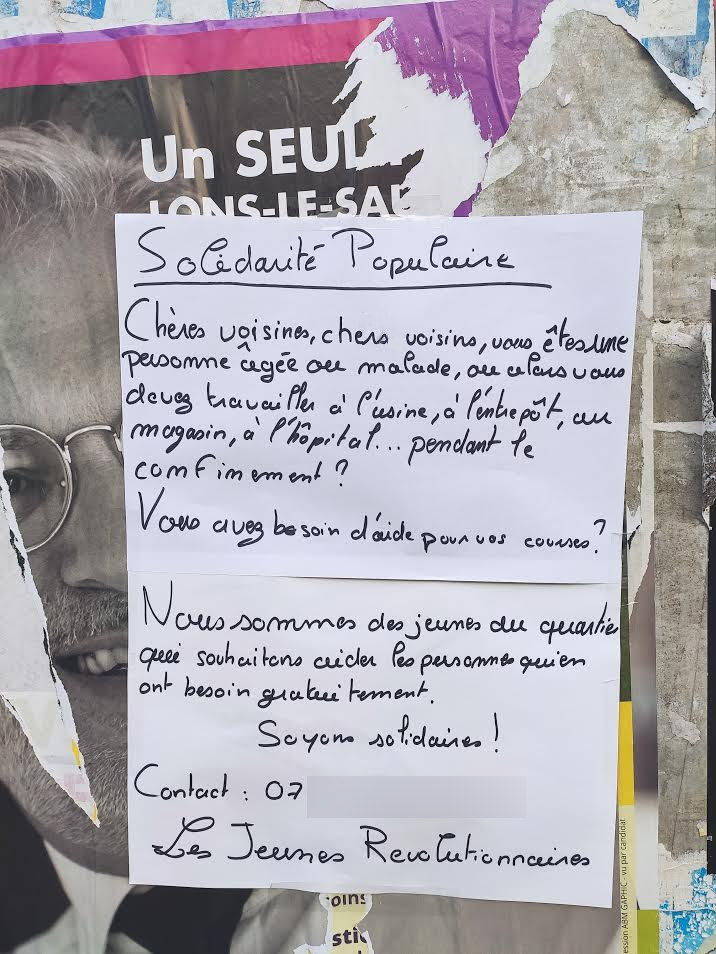 Un SEUL
LONS-LE-SAU
Solidarité Populaire
Chères voisines, chers voisins, vous êtes une
personne âgée ou malade, ou alors vous
devez travailler à l'usine, à l'entrepôt, au
magasin, à l'hôpital... pendant le
confinement ?
Vous avez besoin d'aide pour vos courses ?
Nous sommes des jeunes du quartier
qui souhaitons aider les personnes qui en
ont besoin gratuitement.
Soyons solidaires !
Contact : 07
Les Jeunes Revolutionnaires
oins
stic
ession ABM GAPHIC - vu par candidat